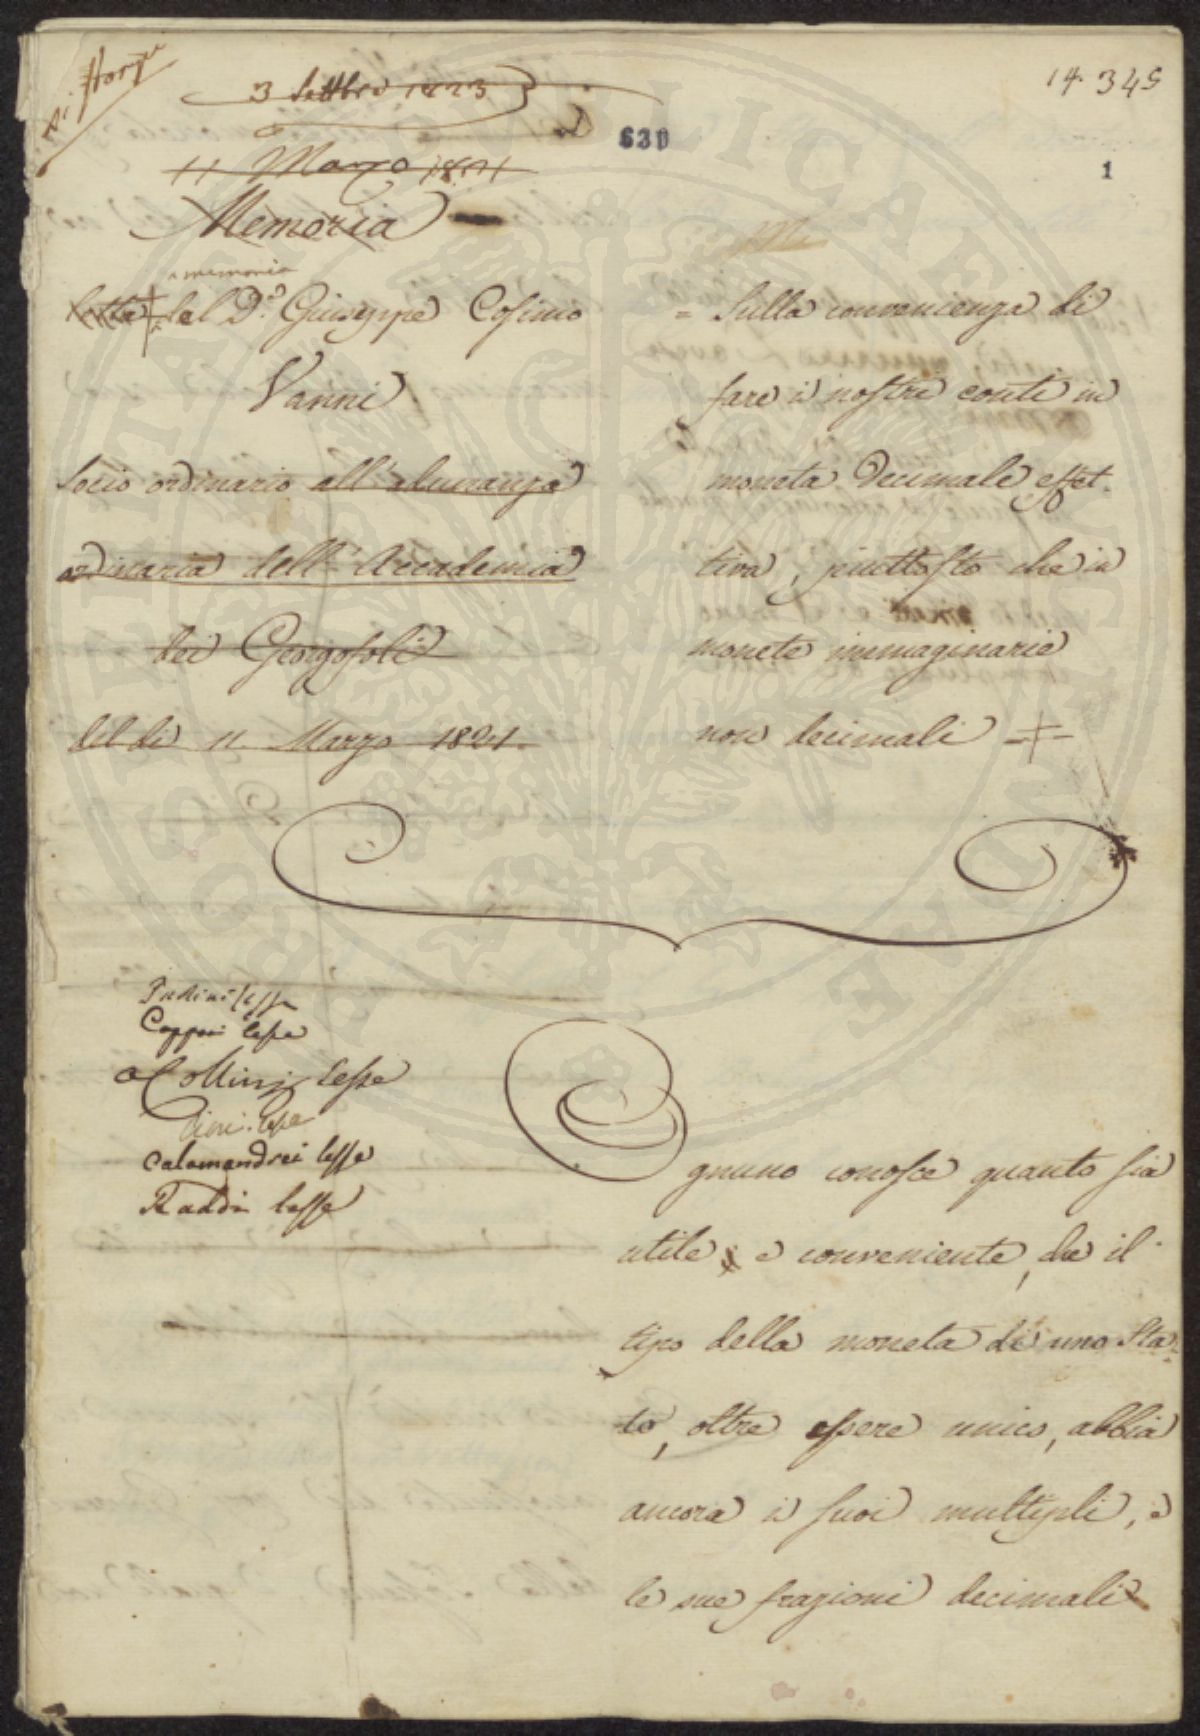 3 Settbre 1823
14. 345
630
1
11 Marzo 1821
Memoria
memoria
Letta del D.r Giuseppe Cosimo
Vanni
Socio ordinario all'adunanza
ordinaria dell'Accademia
dei Georgofoli
del di 11. Marzo 1821.
= Sulla convenienza di
fare i nostri conti in
moneta decimale effet-
tiva, piuttosto che in
monete immaginarie
non decimali =
Capponi lesse
Collini lesse
lesse
Calamandrei lesse
Raddi lesse
Ognuno conosce quanto sia
utile e conveniente, che il
tipo della moneta di uno Sta-
to, oltre essere unico, abbia
ancora i suoi multipli, e
le sue frazioni decimali